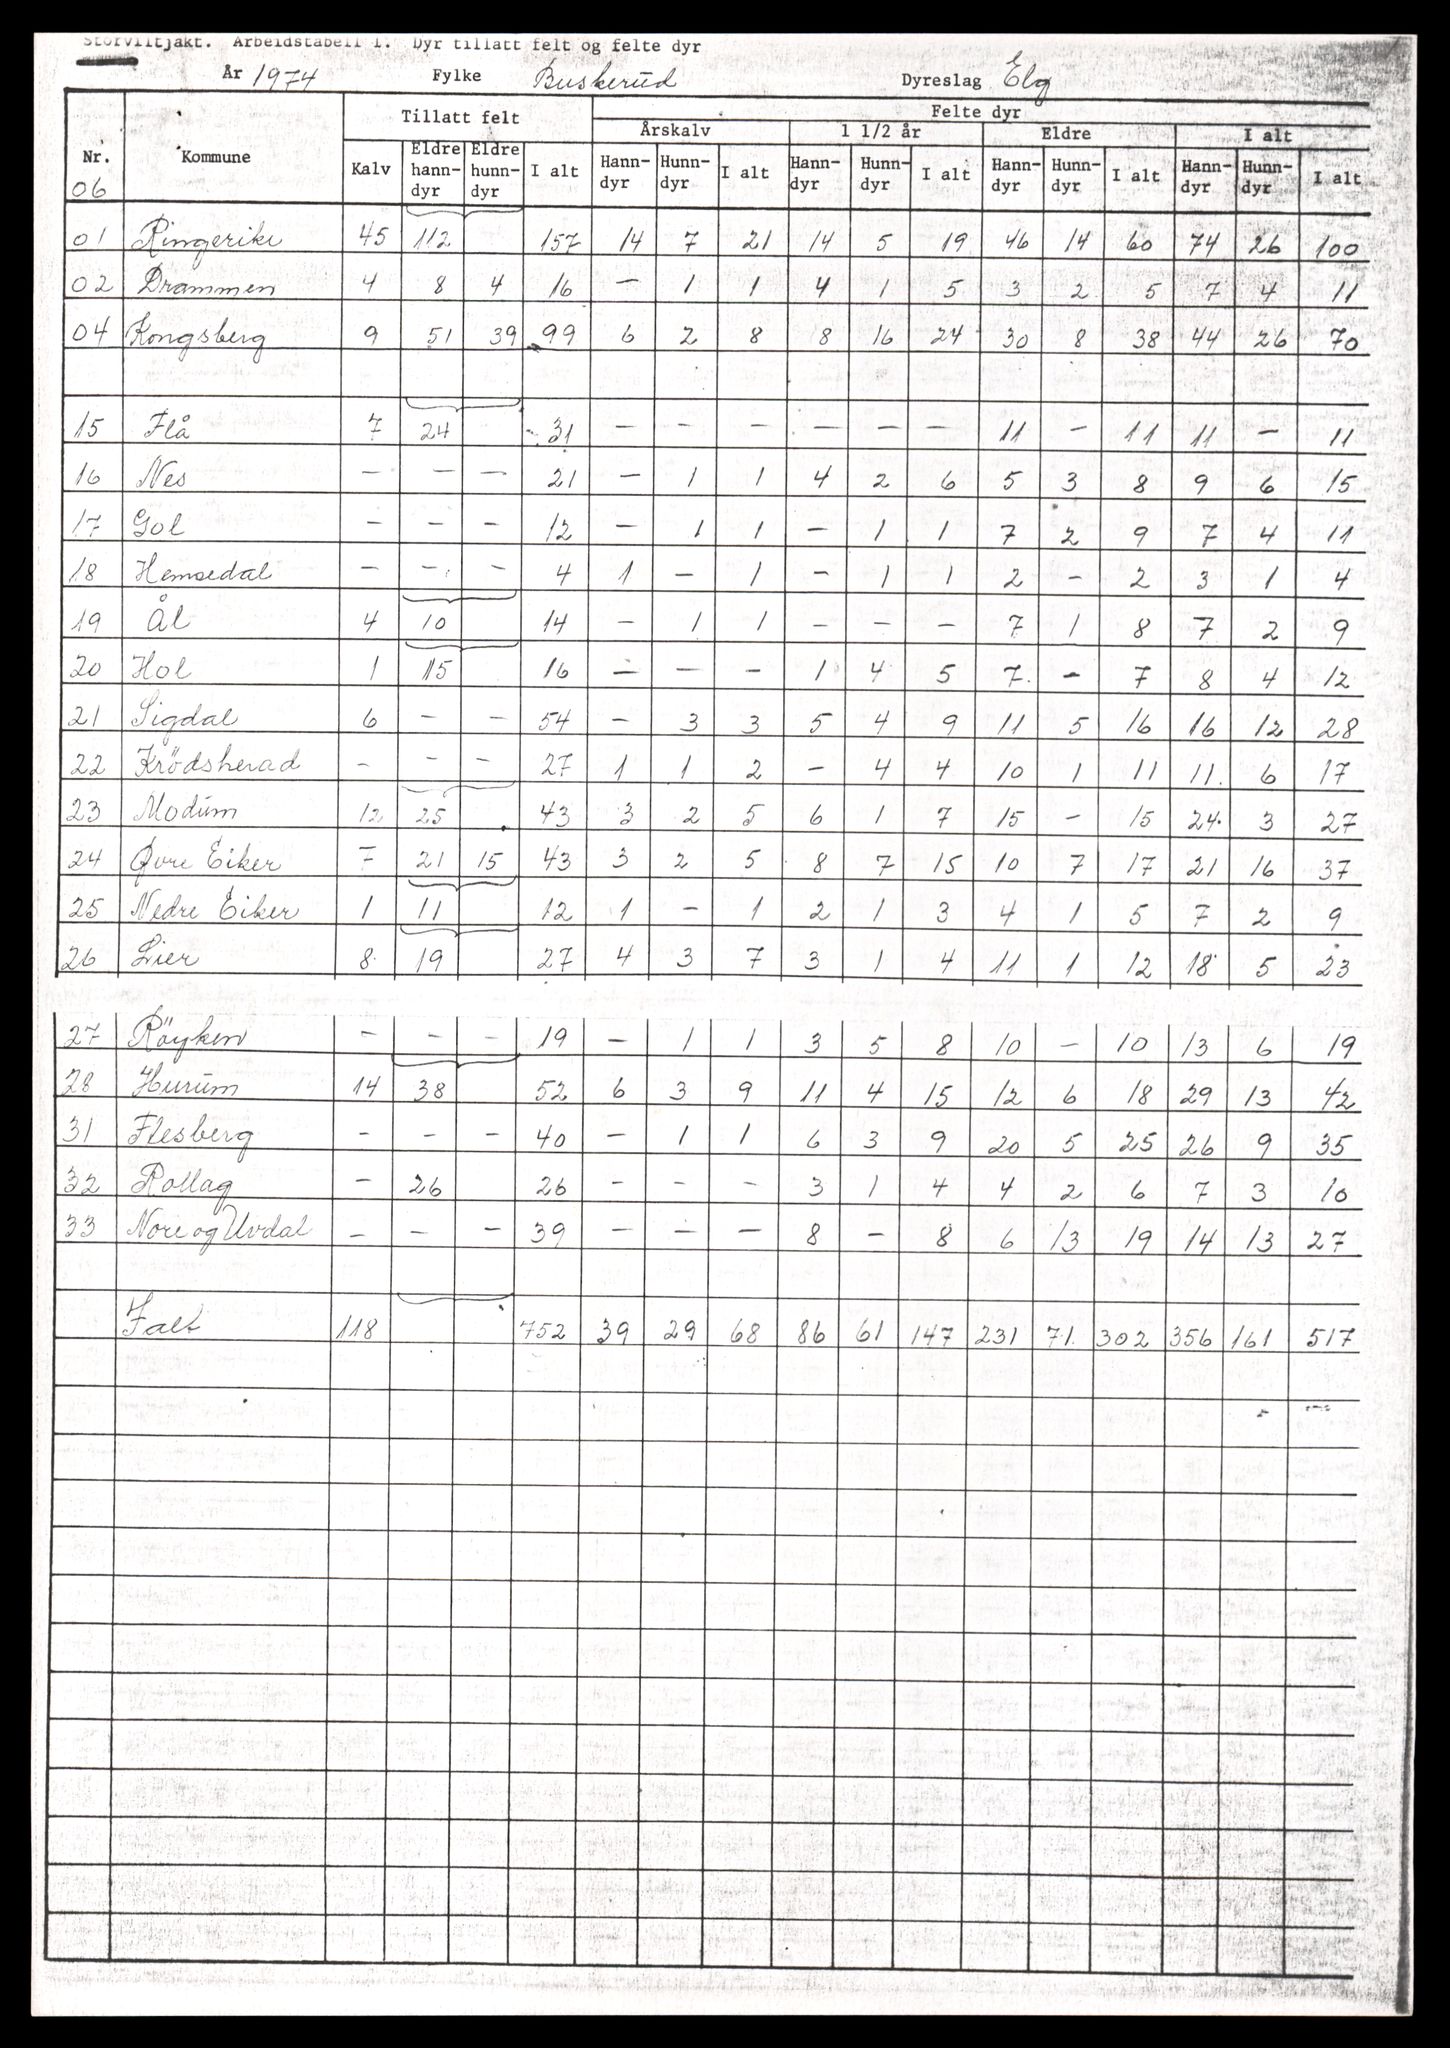 Storviltjakt. Arbeidstabell 1. Dyr tillatt felt og felte dyr
År 1974 Fylke Buskerud Dyreslag Elg
Tillatt felt Felte dyr
Årskalv 1 1/2 år Eldre I alt
Nr. Kommune Kalv Eldre hann-dyr Eldre hunn-dyr I alt Hann-dyr Hunn-dyr I alt Hann-dyr Hunn-dyr I alt Hann-dyr Hunn-dyr I alt Hann-dyr Hunn-dyr I alt
06
01 Ringerike 45 112 157 14 7 21 14 5 19 46 14 60 74 26 100
02 Drammen 4 8 4 16 – 1 1 4 1 5 3 2 5 7 4 11
04 Kongsberg 9 51 39 99 6 2 8 8 16 24 30 8 38 44 26 70
15 Flå 7 24 31 – – – – – – 11 – 11 11 – 11
16 Nes – – – 21 – 1 1 4 2 6 5 3 8 9 6 15
17 Gol – – – 12 – 1 1 – 1 1 7 2 9 7 4 11
18 Hemsedal – – – 4 1 – 1 – 1 1 2 – 2 3 1 4
19 Ål 4 10 14 – 1 1 – – – 7 1 8 7 2 9
20 Hol 1 15 16 – – – 1 4 5 7 – 7 8 4 12
21 Sigdal 6 – – 54 – 3 3 5 4 9 11 5 16 16 12 28
22 Krödsherad – – – 27 1 1 2 – 4 4 10 1 11 11 6 17
23 Modum 12 25 43 3 2 5 6 1 7 15 – 15 24 3 27
24 Øvre Eiker 7 21 15 43 3 2 5 8 7 15 10 7 17 21 16 37
25 Nedre Eiker 1 11 12 1 – 1 2 1 3 4 1 5 7 2 9
26 Lier 8 19 27 4 3 7 3 1 4 11 1 12 18 5 23
27 Röyken – – – 19 – 1 1 3 5 8 10 – 10 13 6 19
28 Hurum 14 38 52 6 3 9 11 4 15 12 6 18 29 13 42
31 Flesberg – – – 40 – 1 1 6 3 9 20 5 25 26 9 35
32 Rollag – 26 26 – – – 3 1 4 4 2 6 7 3 10
33 Nore og Uvdal – – – 39 – – – 8 – 8 6 13 19 14 13 27
I alt 118 752 39 29 68 86 61 147 231 71 302 356 161 517